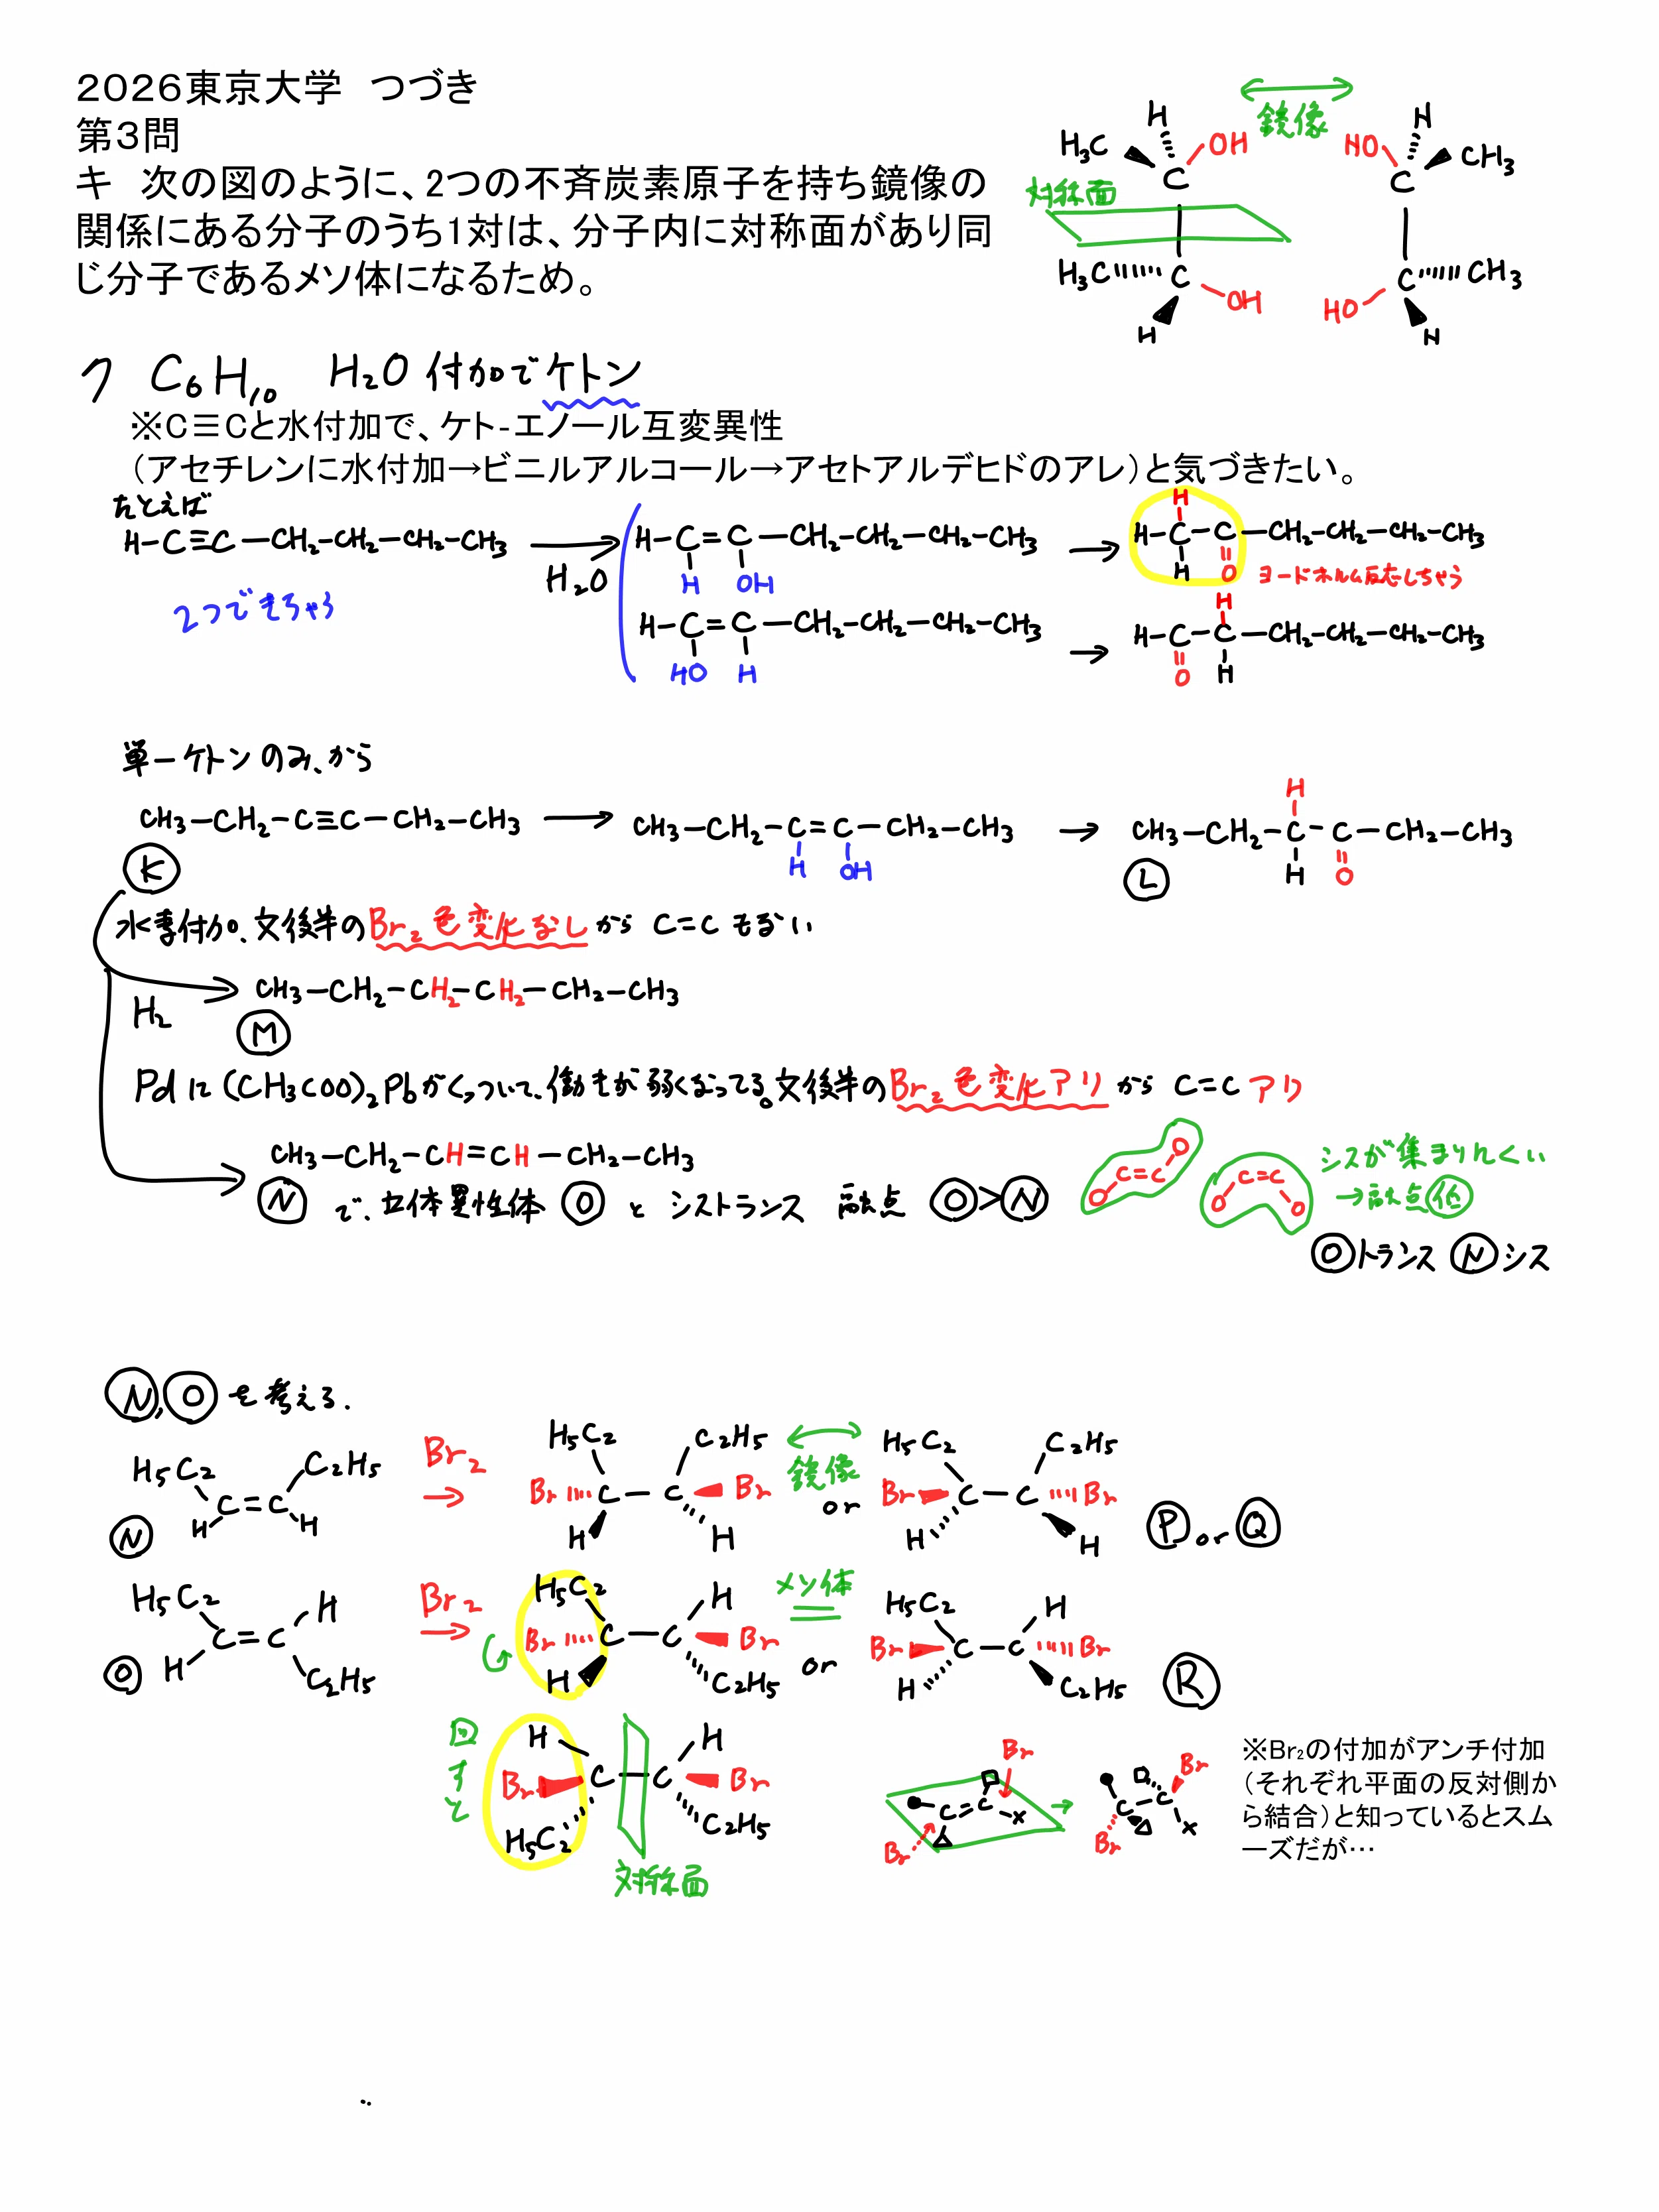 2026東京大学　つづき
第3問
キ　次の図のように、2つの不斉炭素原子を持ち鏡像の
関係にある分子のうち1対は、分子内に対称面があり同
じ分子であるメソ体になるため。
鏡像
H H
H₃C OH HO CH₃
C C
対称面
H₃C C OH HO C CH₃
H H
ク C₆H₁₀ H₂O付加でケトン
※C≡Cと水付加で、ケト-エノール互変異性
（アセチレンに水付加→ビニルアルコール→アセトアルデヒドのアレ）と気づきたい。
たとえば
H-C≡C-CH₂-CH₂-CH₂-CH₃ → H₂O
H-C=C-CH₂-CH₂-CH₂-CH₃ →
H OH
H
H-C-C-CH₂-CH₂-CH₂-CH₃
H O ヨードホルム反応しちゃう
2つできちゃう
H-C=C-CH₂-CH₂-CH₂-CH₃ →
HO H
H
H-C-C-CH₂-CH₂-CH₂-CH₃
O H
単一ケトンのみ、から
CH₃-CH₂-C≡C-CH₂-CH₃ → CH₃-CH₂-C=C-CH₂-CH₃ → CH₃-CH₂-C-C-CH₂-CH₃
H
K H OH L H O
水素付加、文後半のBr₂色変化なしから C=Cもない
H₂ CH₃-CH₂-CH₂-CH₂-CH₂-CH₃
M
Pdに(CH₃COO)₂Pbがくっついて、働きが弱くなってる。文後半のBr₂色変化アリから C=Cアリ
CH₃-CH₂-CH=CH-CH₂-CH₃
N で、立体異性体 O と シストランス 融点 O>N
O C=C O
O C=C O
シスが集まりにくい
→融点低
O トランス N シス
N, O を考える.
H₅C₂ C₂H₅ C=C H H
N
Br₂ →
H₅C₂ C₂H₅
Br C-C Br
H H
鏡像
or
H₅C₂ C₂H₅
Br C-C Br
H H
P or Q
H₅C₂ H C=C H C₂H₅
O
Br₂ →
H₅C₂ H
Br C-C Br
H C₂H₅
メソ体
or
H₅C₂ H
Br C-C Br
H C₂H₅
R
回すと
H H
Br C-C Br
H₅C₂ C₂H₅
対称面
Br
C=C x
Br
→
Br
C C
Br x
※Br₂の付加がアンチ付加
（それぞれ平面の反対側か
ら結合）と知っているとスム
ーズだが…